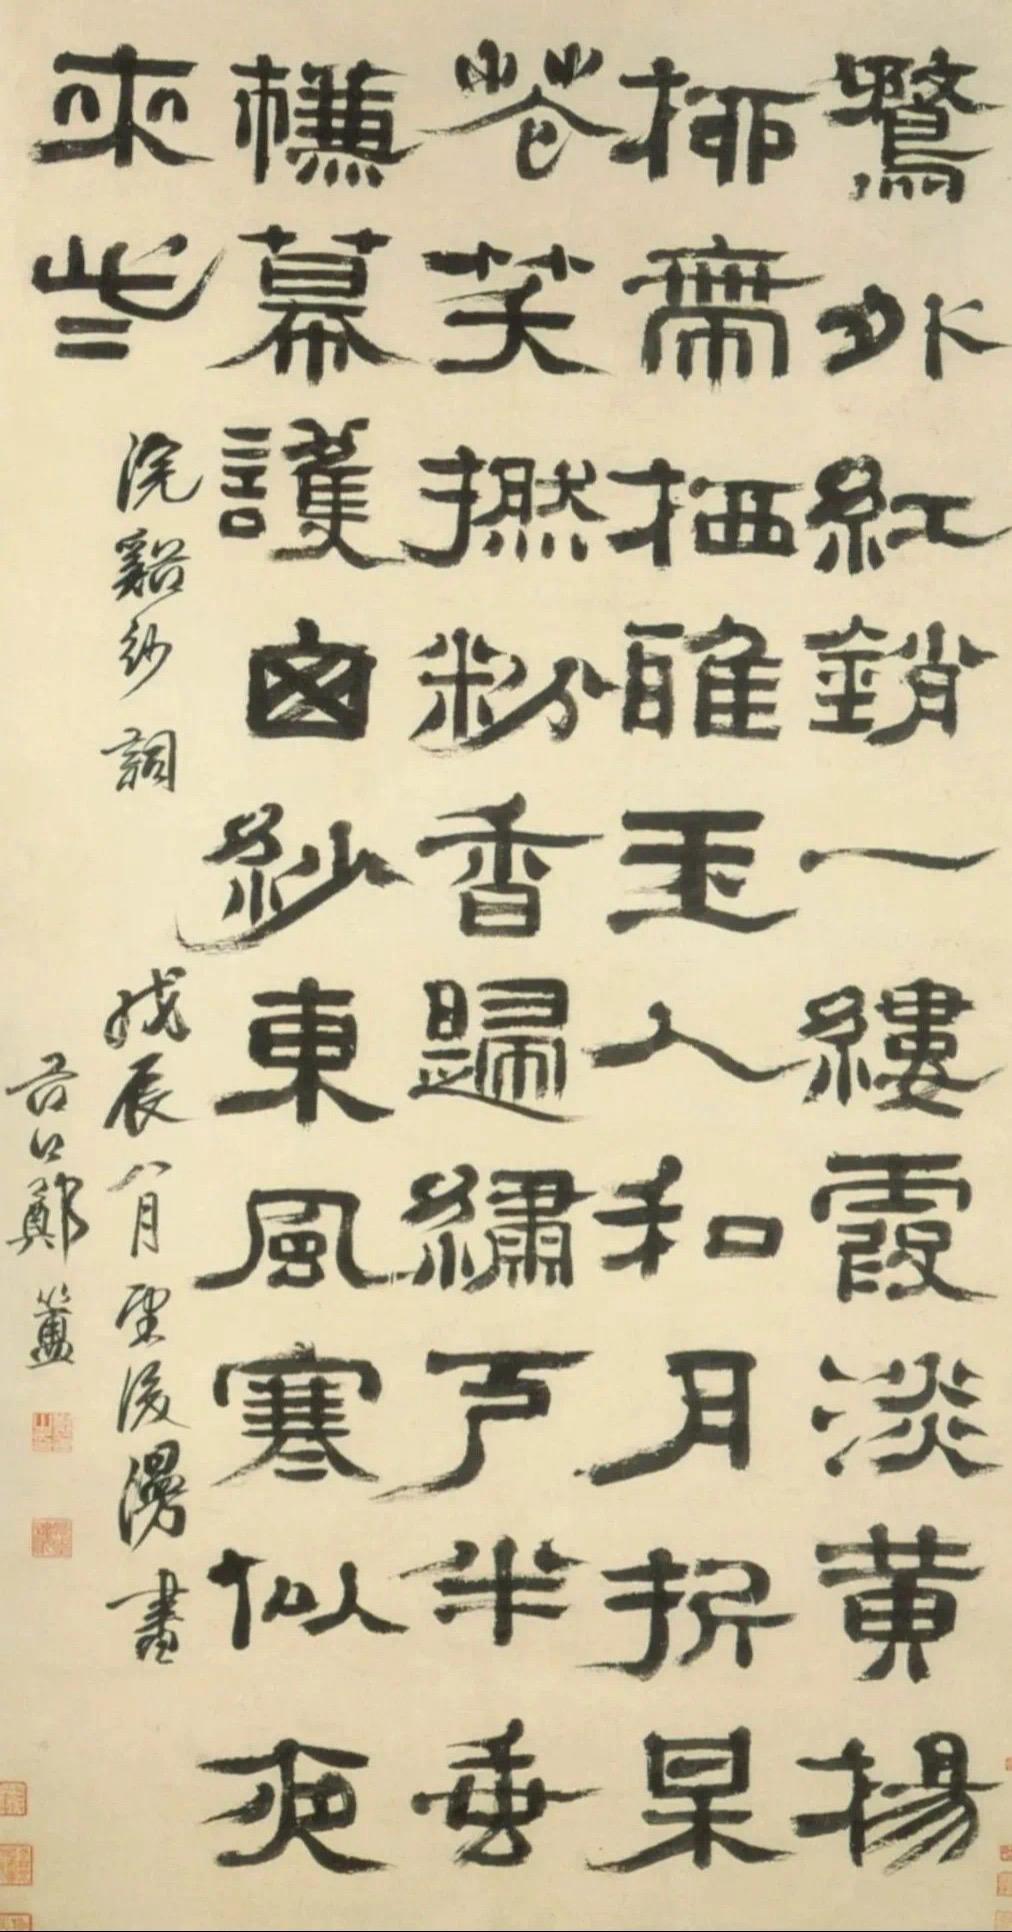 鶩外紅銷一縷霞淡黃楊
桺帶栖雅玉人和月折呆
蒼笑撚粉香歸繡戶半垂
槏幕護囱紗東風寒似夜
來些
浣谿紗詞 戊辰八月望後漫書
谷口鄭簠